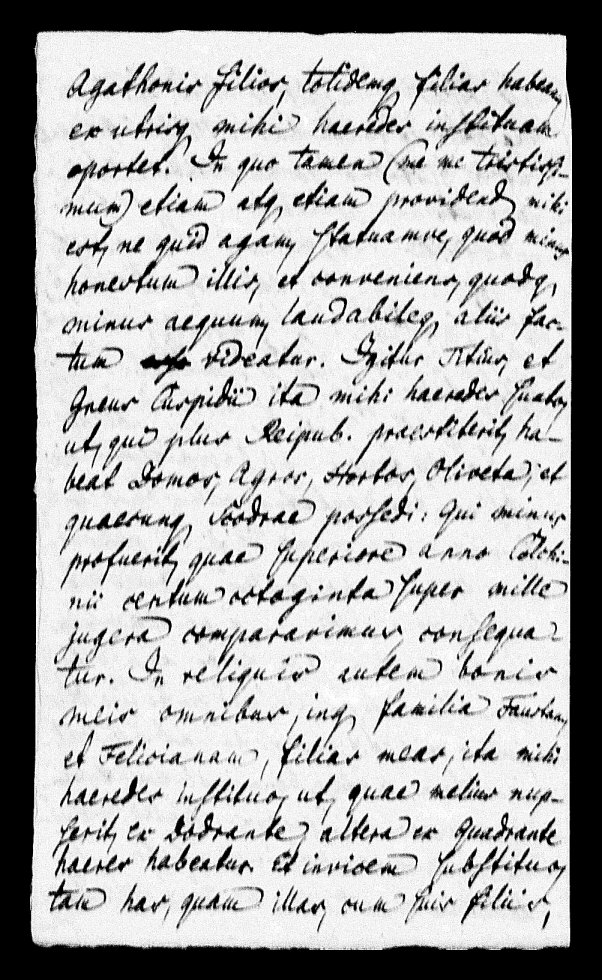 Agathonis filios, totidemq, filias habeam,
ex utrisq, mihi haeredes instituam
oportet. In quo tamen (me me tristissi-
mum) etiam atq, etiam providend, mihi
est, ne quid agam, statuamve, quod minus
honestum illis, et conveniens, quodq,
minus aequum, laudabileq, aliis fac-
tum videatur. Igitur Titius, et
Gneus Cuspidii ita mihi haeredes sunto,
ut, qui plus Reipub. praestiterit, ha-
beat Domos, Agros, Hortos, Oliveta, et
quaecunq, Scodrae possedi: Qui minus
profuerit, quae superiore anno Olchi-
nii centum octaginta super mille
jugera comparavimus, consequa-
tur. In reliquis autem bonis
meis omnibus, inq, familia Faustam,
et Felicianam, filias meas, ita mihi
haeredes instituo, ut, quae melius nup-
serit, ex Dodrante, altera ex Quadrante
haeres habeatur. Et invicem substituo,
tam has, quam illas, cum suis filiis,